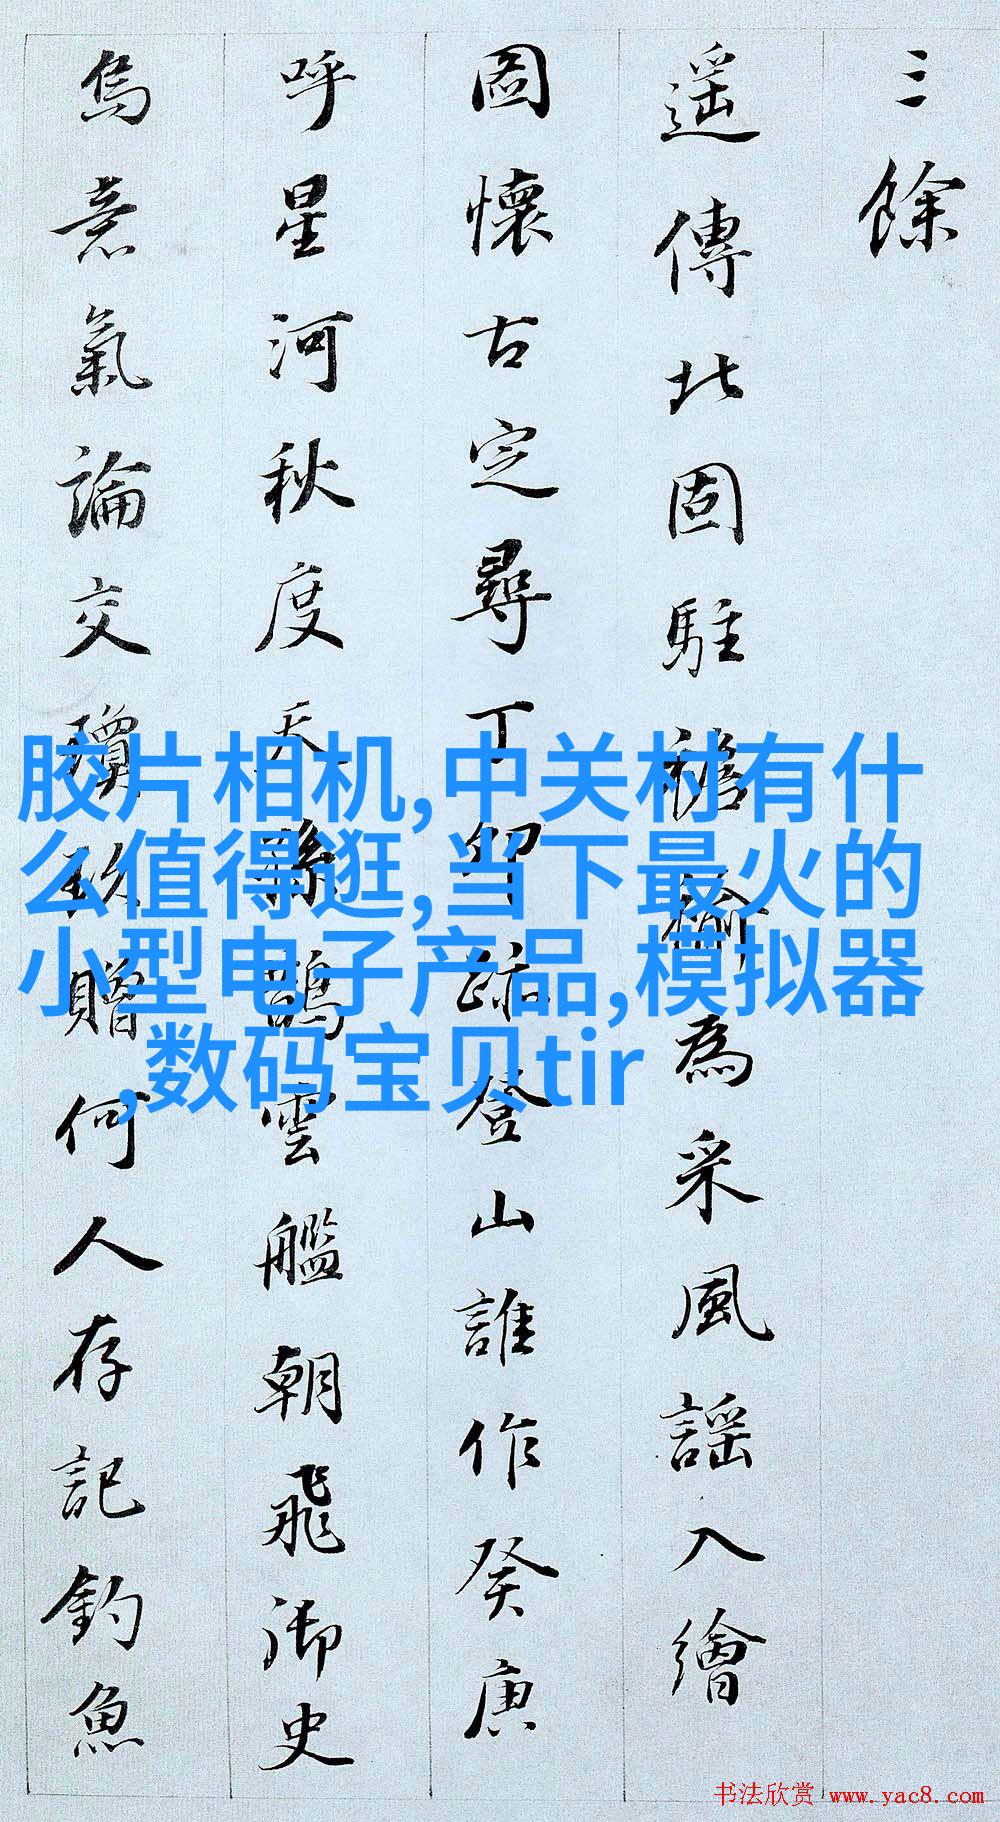 三餘
遥傳北固駐襜褕為采風謡入繪
圖懷古定尋丁卯跡登山誰作癸庚
呼星河秋度天孫鵲雲艦朝飛御史
烏意氣論交瓊玖贈何人存記釣魚
胶片相机,中关村有什
么值得逛,当下最火的
小型电子产品,模拟器
,数码宝贝tir
书法欣赏 www.yac8.com